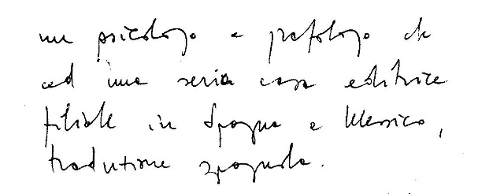 un psicologo e grafologo che
ed una seria casa editrice
filiale in Spagna e Messico,
traduzione spagnola.